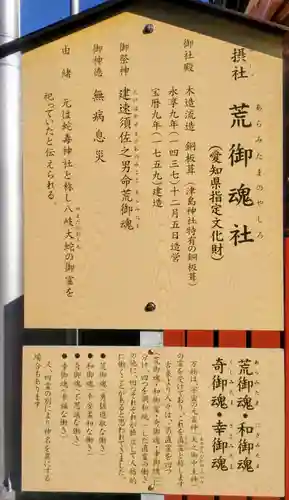 摂社 荒御魂社
あらみたまのやしろ
(愛知県指定文化財)
御社殿 木造流造 銅板葺(津島神社特有の銅板葺)
永享九年(一四三七)十二月五日造営
宝暦九年(一七五九)建造
御祭神 建速須佐之男命荒御魂
御神徳 無病息災
由緒 元は蛇毒神社と称し八岐大蛇の御霊を
祀っていたと伝えられる。
荒御魂・和御魂
あらみたま にぎみたま
奇御魂・幸御魂
くしみたま さちみたま
に働くことがあると思われてきました。
● 荒御魂(勇猛進取な働き)
● 和御魂(平安柔和な働き)
● 奇御魂(不思議な働き)
● 幸御魂(幸福な働き)
又、四霊の別により神名を異にする
場合もあります。